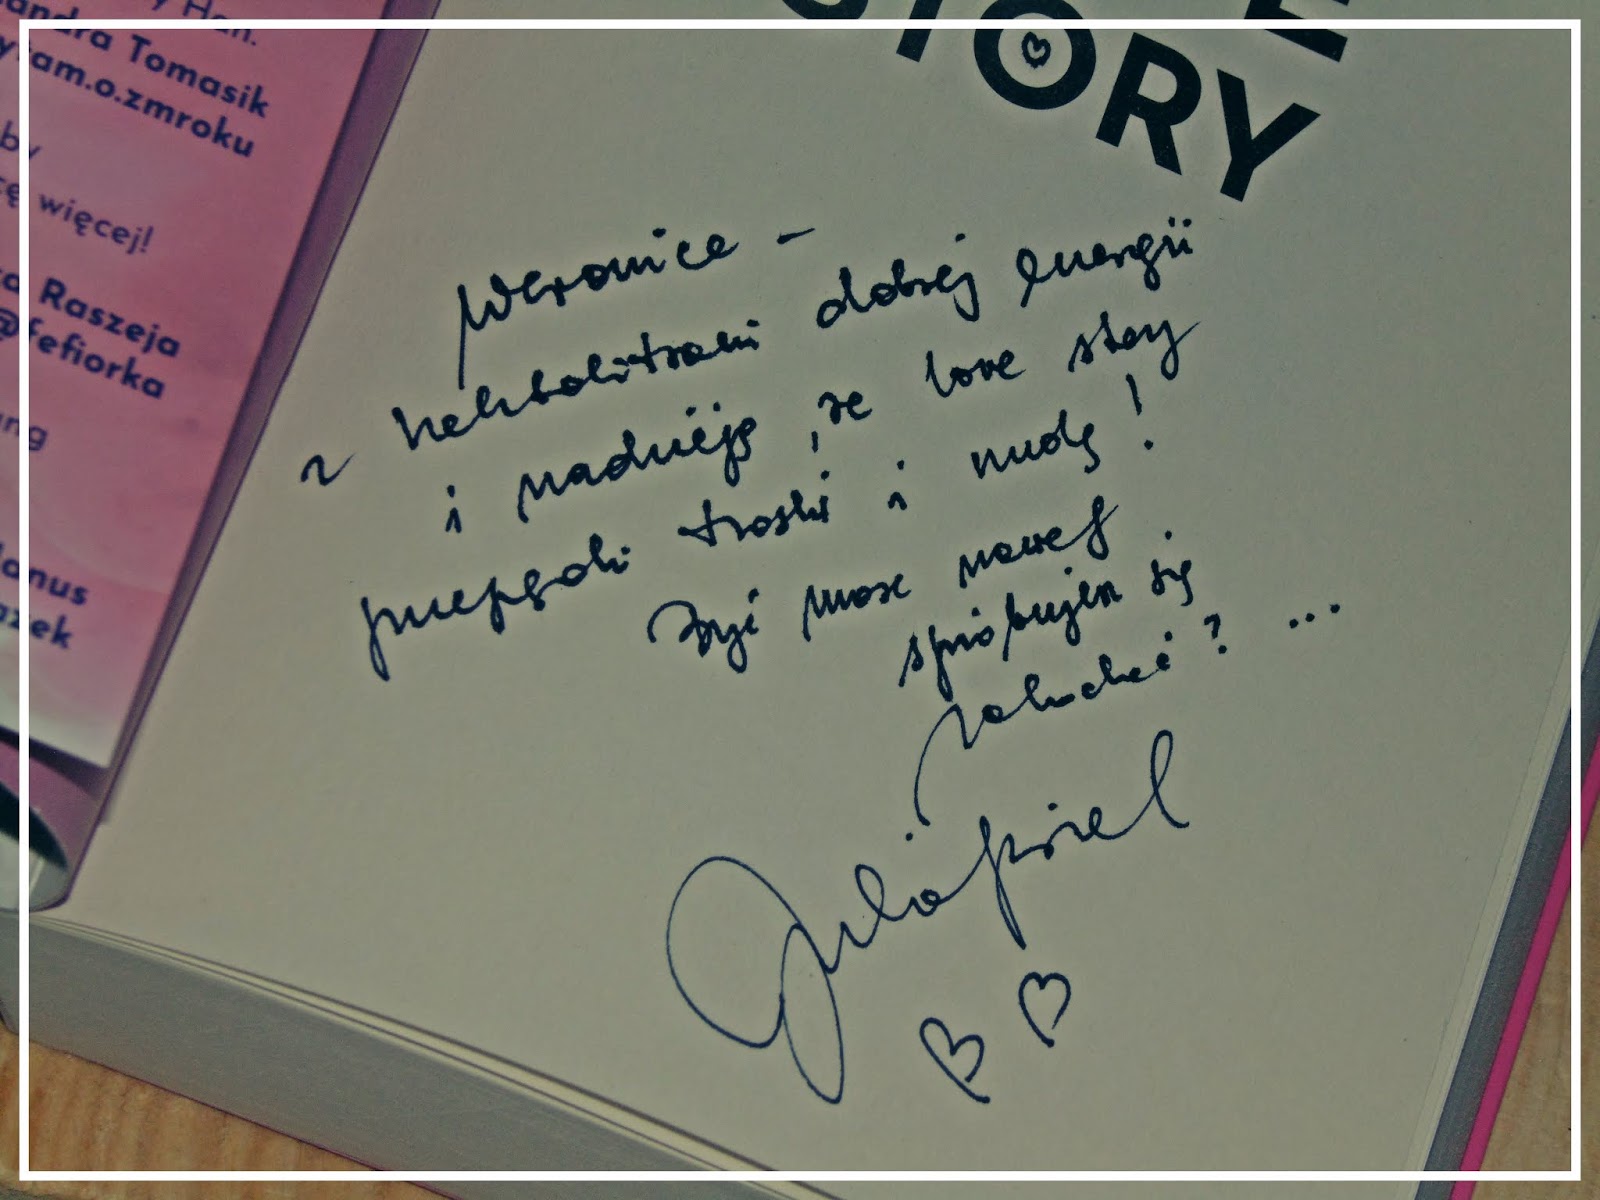 y Han.
andra Tomasik
ytam.o.zmroku
by
cę więcej!
ta Raszeja
@fefiorka
ang
danus
azek
E
STORY
Weronice –
z hektolitrami dobrej energii
i nadzieją, że love story
przepędzi troski i nudę!
Być może nawet
spróbujesz się
zakochać? ...
Julia